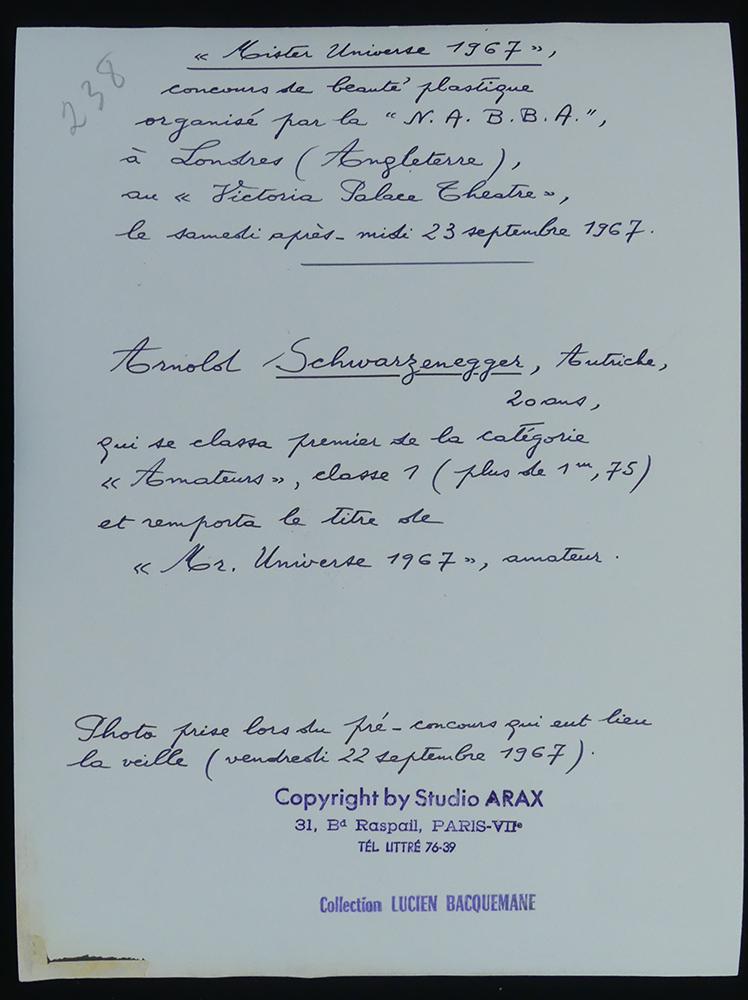 238
« Mister Universe 1967 »,
concours de beauté plastique
organisé par la “ N. A. B. B. A. ”,
à Londres ( Angleterre ),
au « Victoria Palace Theatre »,
le samedi après-midi 23 septembre 1967.
Arnold Schwarzenegger, Autriche,
20 ans,
qui se classa premier de la catégorie
« Amateurs », classe 1 ( plus de 1m,75 )
et remporta le titre de
« Mr. Universe 1967 », amateur.
Photo prise lors du pré-concours qui eut lieu
la veille ( vendredi 22 septembre 1967 ).
Copyright by Studio ARAX
31, Bd Raspail, PARIS-VIIe
TÉL LITTRÉ 76-39
Collection LUCIEN BACQUEMANE